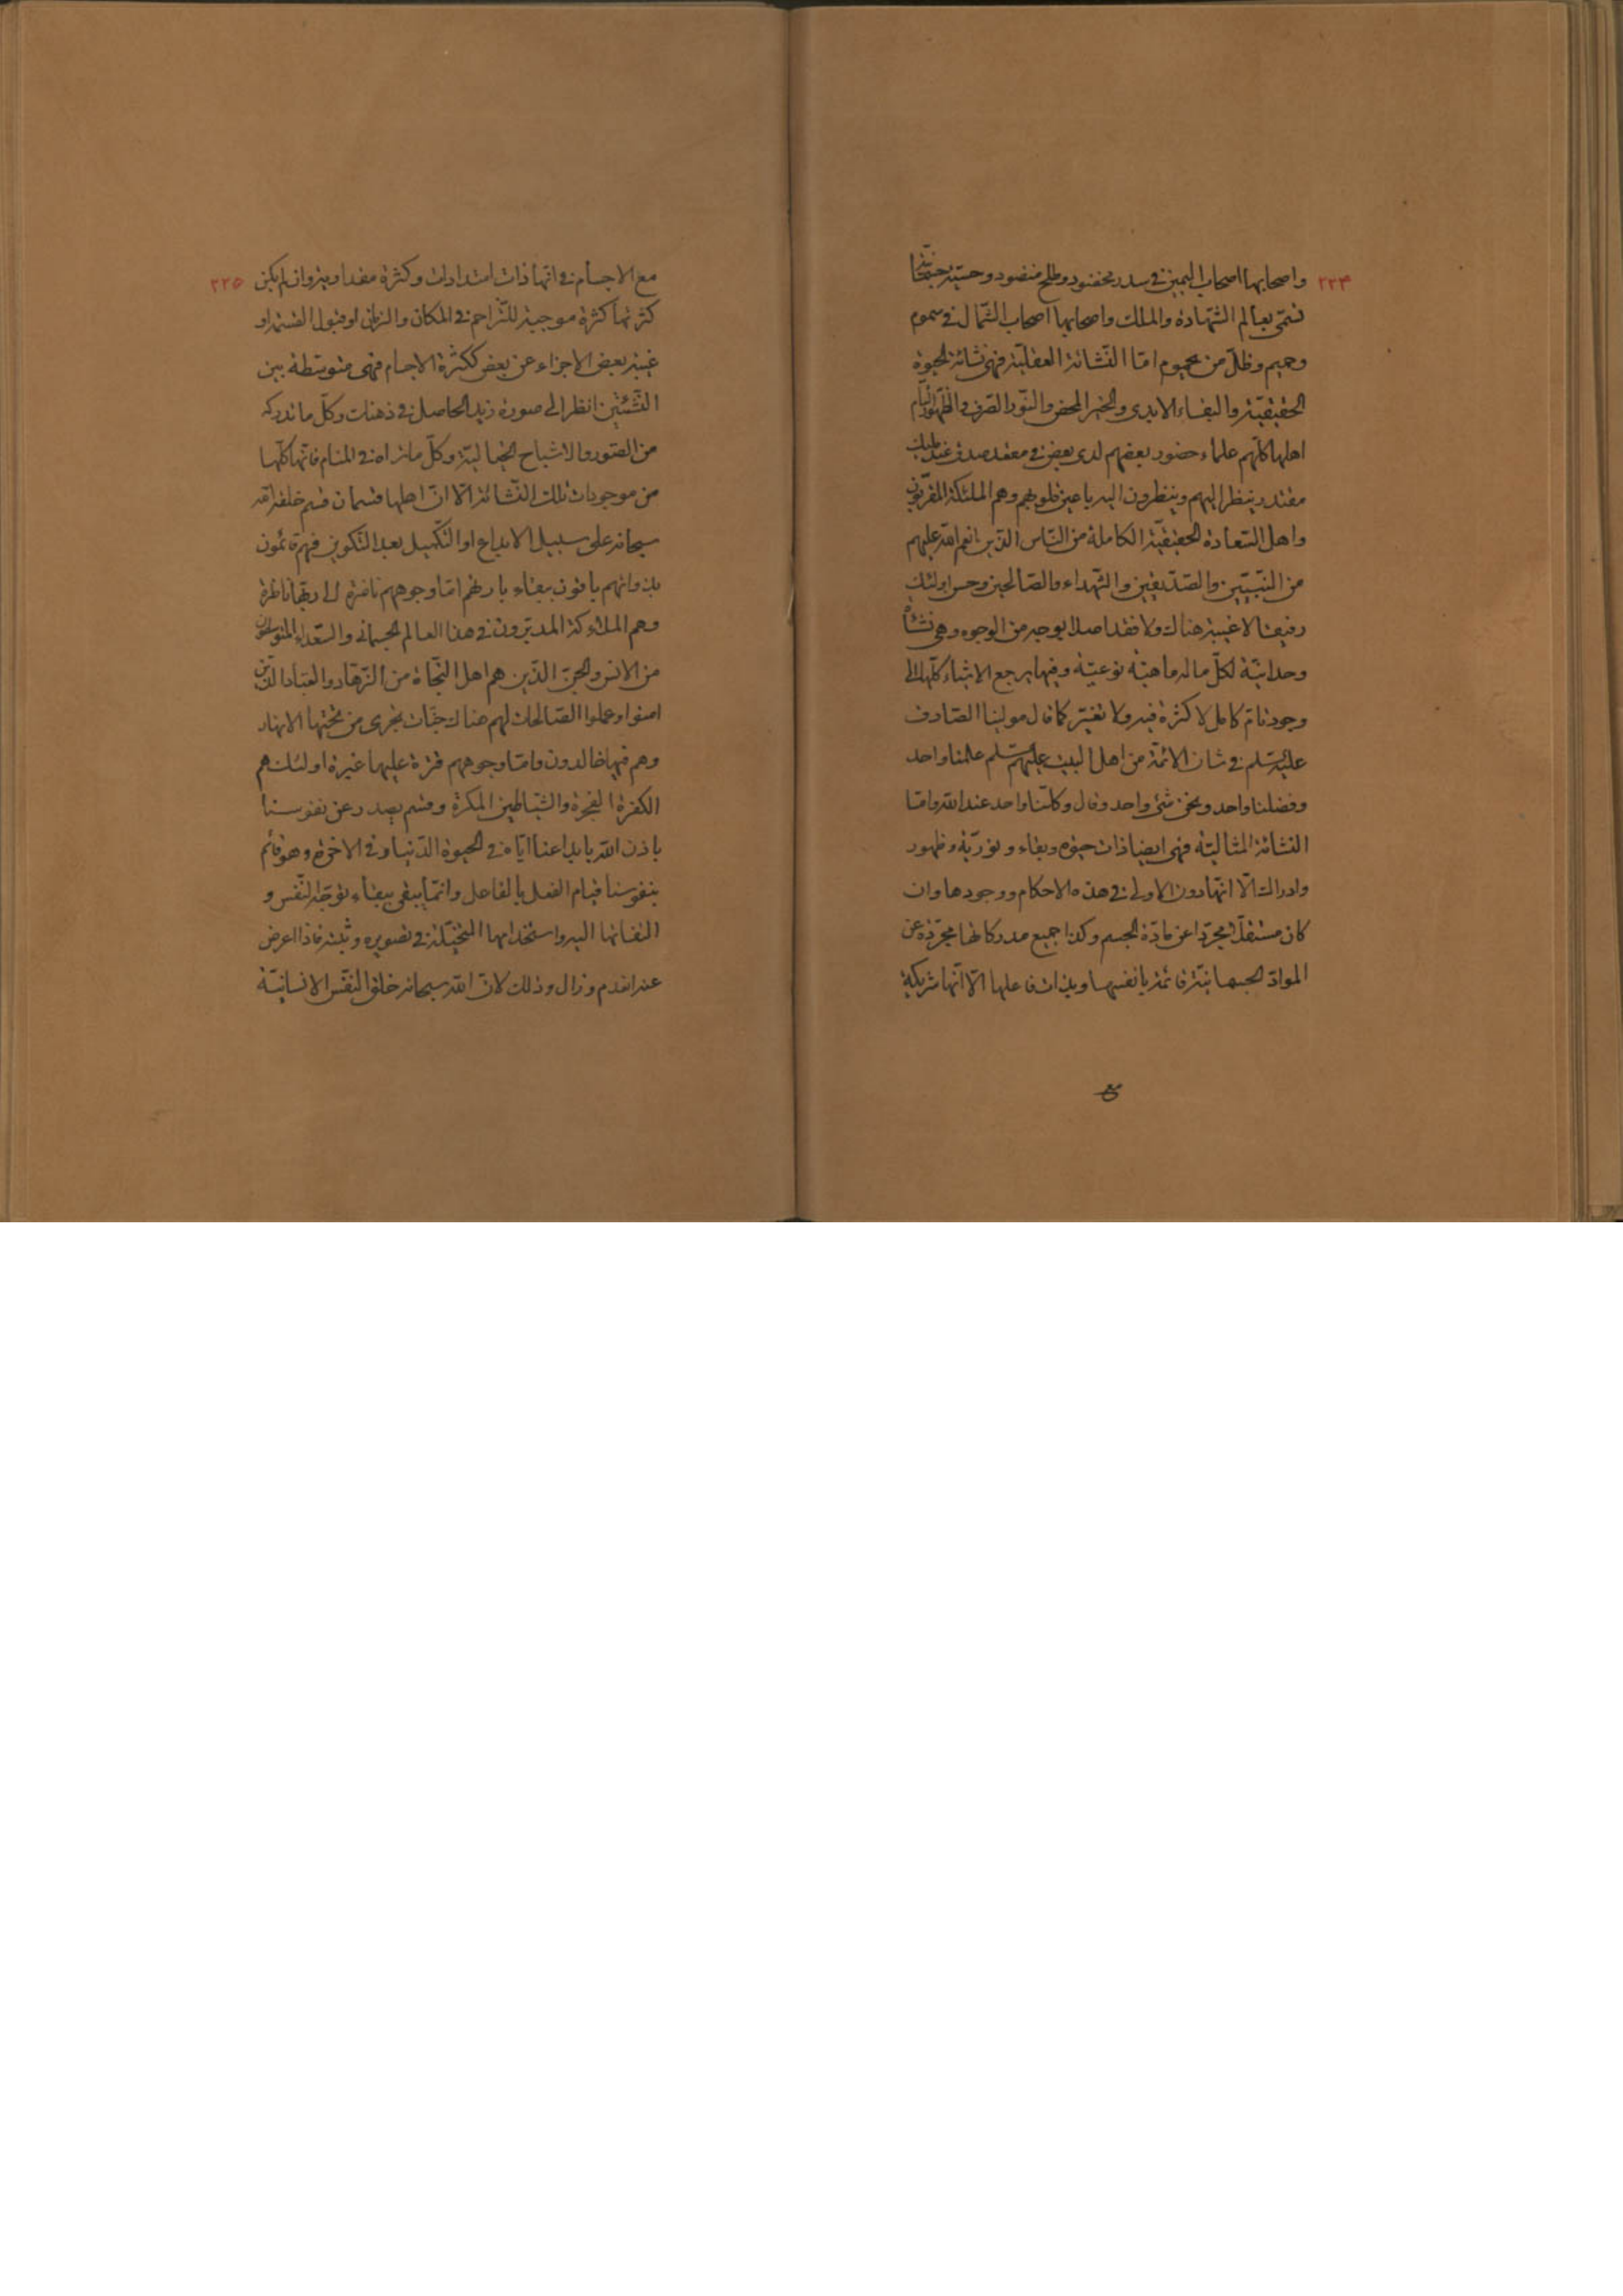 ٢٢۴
واصحابها اصحاب اليمين فى سدر مخضود وطلح منضود وحسّية
تسمّى بعالم الشّهادة والملك واصحابها اصحاب الشّمال فى سموم
وحميم وظلّ من يحموم امّا النّشائة العقليّة فهى نشائة الحيوة
الحقيقيّة والبقاء الابدى والخير المحض والنّور الصّرف والظّهور التّام
اهلها كلّهم علماء حضور بعضهم لدى بعض فى مقعد صدق عند مليك
مقتدر ينظر اليهم وينظرون اليه باعين قلوبهم وهم الملئكة المقرّبون
واهل السّعادة الحقيقيّة الكاملة من النّاس الذّين انعم الله عليهم
من النّبيّين والصّدّيقين والشّهداء والصّالحين وحسن اولئك
رفيقا لا غيبة هناك ولا فقد اصلا بوجه من الوجوه وهى نشأة
وحدانيّة لكلّ ماله ماهيّة نوعيّة وفيها يرجع الاشياء كلّها الى
وجود تامّ كامل لا كثرة فيه ولا تغيّر كما قال مولينا الصّادق
عليه السّلم فى شان الائمّة من اهل البيت عليهم السّلم علمنا واحد
وفضلنا واحد ونحن شئ واحد وقال وكلّنا واحد عند الله وامّا
النشائة المثاليّة فهى ايضا ذات حيوة وبقاء ونوريّة وظهور
وادراك الّا انّها دون الاولى فى هذه الاحكام ووجودها وان
كان مستقلّا مجرّدا عن مادّة الجسم وكذا جميع مدركاتها مجرّدة عن
الموادّ الجسمانيّة قائمة بانفسها وبذات فاعلها الّا انّها شريكة
مع
٢٢۵
مع الاجسام فى انّها ذات امتدادات وكثرة مقداريّة وان لم يكن
كثرتها كثرة موجبة للتّزاحم فى المكان والزمان او قبول القسمة او
غيبة بعض الاجزاء عن بعض ككثرة الاجسام فهى متوسّطة بين
النّشئتين انظر الى صورة زيد الحاصل فى ذهنك وكلّ ما تدركه
من الصّور والاشباح الخياليّة وكلّ ما تراه فى المنام فانّها كلّها
من موجودات تلك النّشائة الّا انّ اهلها قسمان قسم خلقه الله
سبحانه على سبيل الابداع او التّكميل بعد التّكوين فهم قائمون
بذواتهم باقون ببقاء بارئهم امّا وجوههم ناضرة الى ربّها ناظرة
وهم الملائكة المدبّرون فى هذا العالم الجسمانى والسّعداء المتوسّطون
من الانس والجنّ الذّين هم اهل النّجاة من الزّهّاد والعبّاد الذّين
امنوا وعملوا الصّالحات لهم هناك جنّات تجرى من تحتها الانهار
وهم فيها خالدون وامّا وجوههم قترة عليها غبرة اولئك هم
الكفرة الفجرة والشّياطين المكرة وقسم يصدر عن نفوسنا
باذن الله بابداعنا ايّاه فى الحيوة الدّنيا وفى الاخرة وهو قائم
بنفوسنا قيام الفعل بالفاعل وانّما يبقى ببقاء توجّه النّفس و
التفاتها اليه واستخدامها المتخيّلة فى تصويره وتثبته فاذا اعرض
عنه انعدم وزال وذلك لانّ الله سبحانه خلق النّفس الانسانيّة